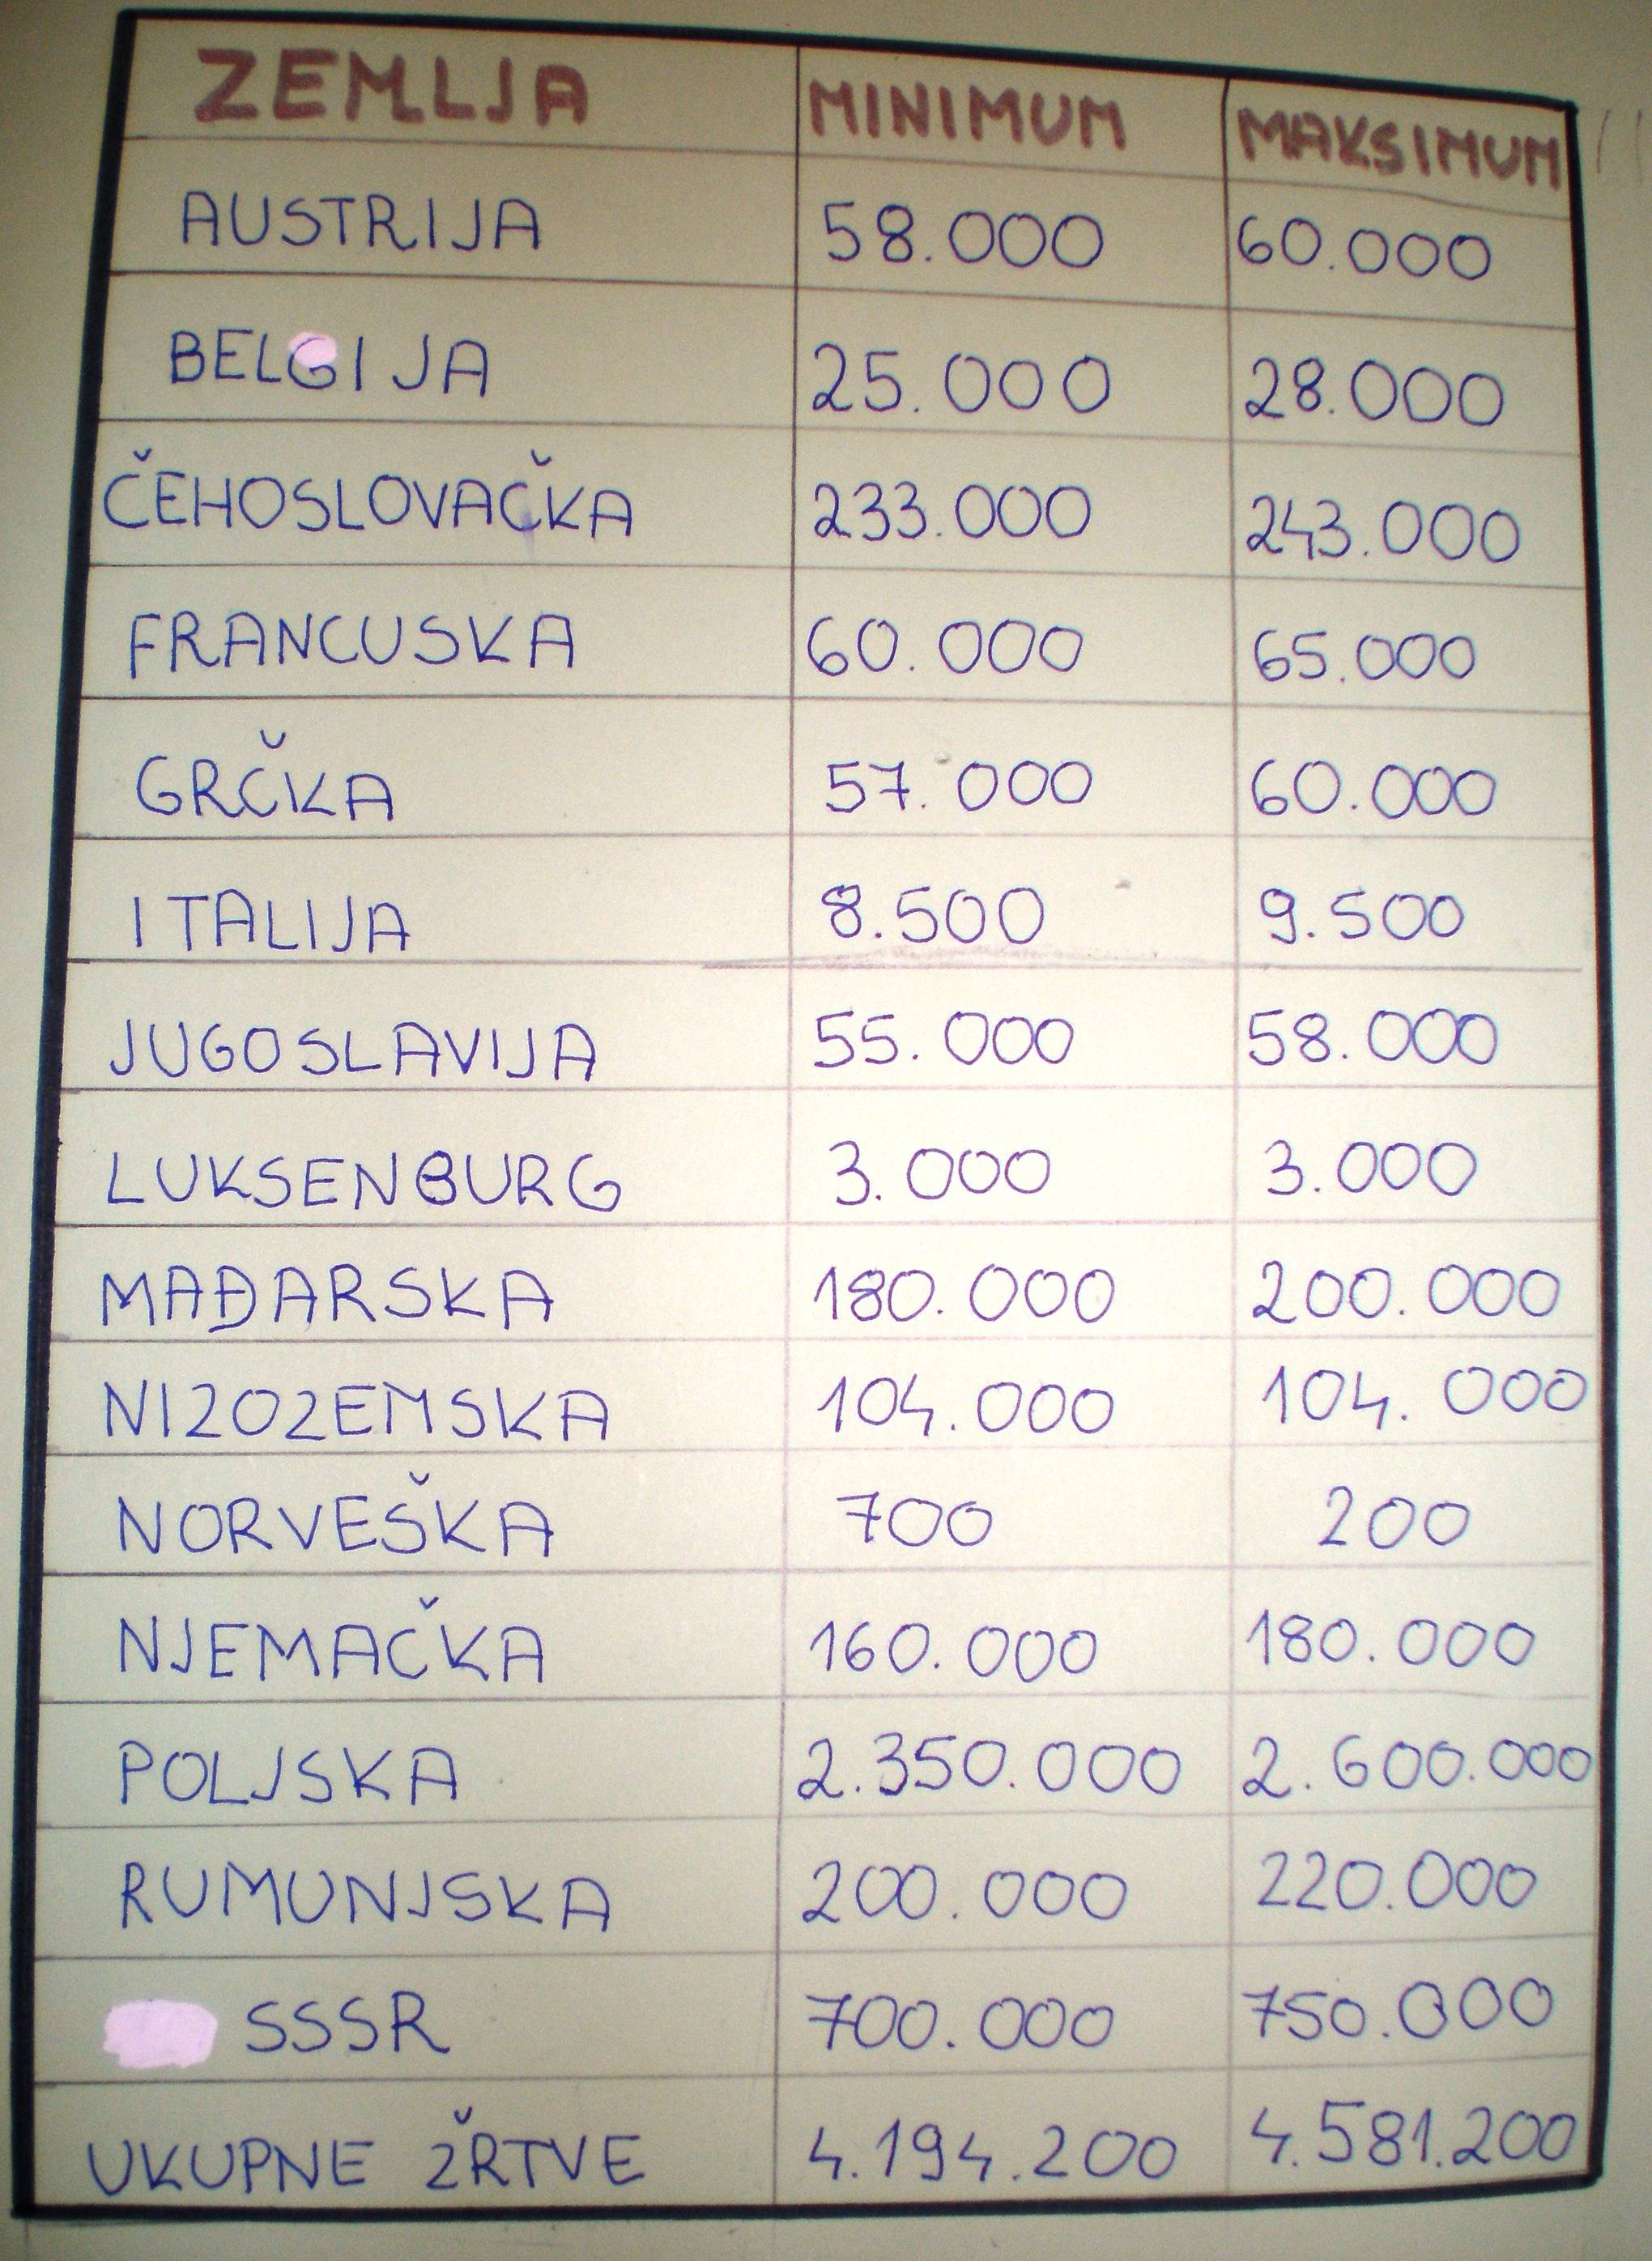 ZEMLJA MINIMUM MAKSIMUM
AUSTRIJA 58.000 60.000
BELGIJA 25.000 28.000
ČEHOSLOVAČKA 233.000 243.000
FRANCUSKA 60.000 65.000
GRČKA 57.000 60.000
ITALIJA 8.500 9.500
JUGOSLAVIJA 55.000 58.000
LUKSENBURG 3.000 3.000
MAĐARSKA 180.000 200.000
NIZOZEMSKA 104.000 104.000
NORVEŠKA 700 200
NJEMAČKA 160.000 180.000
POLJSKA 2.350.000 2.600.000
RUMUNJSKA 200.000 220.000
SSSR 700.000 750.000
UKUPNE ŽRTVE 4.194.200 4.581.200